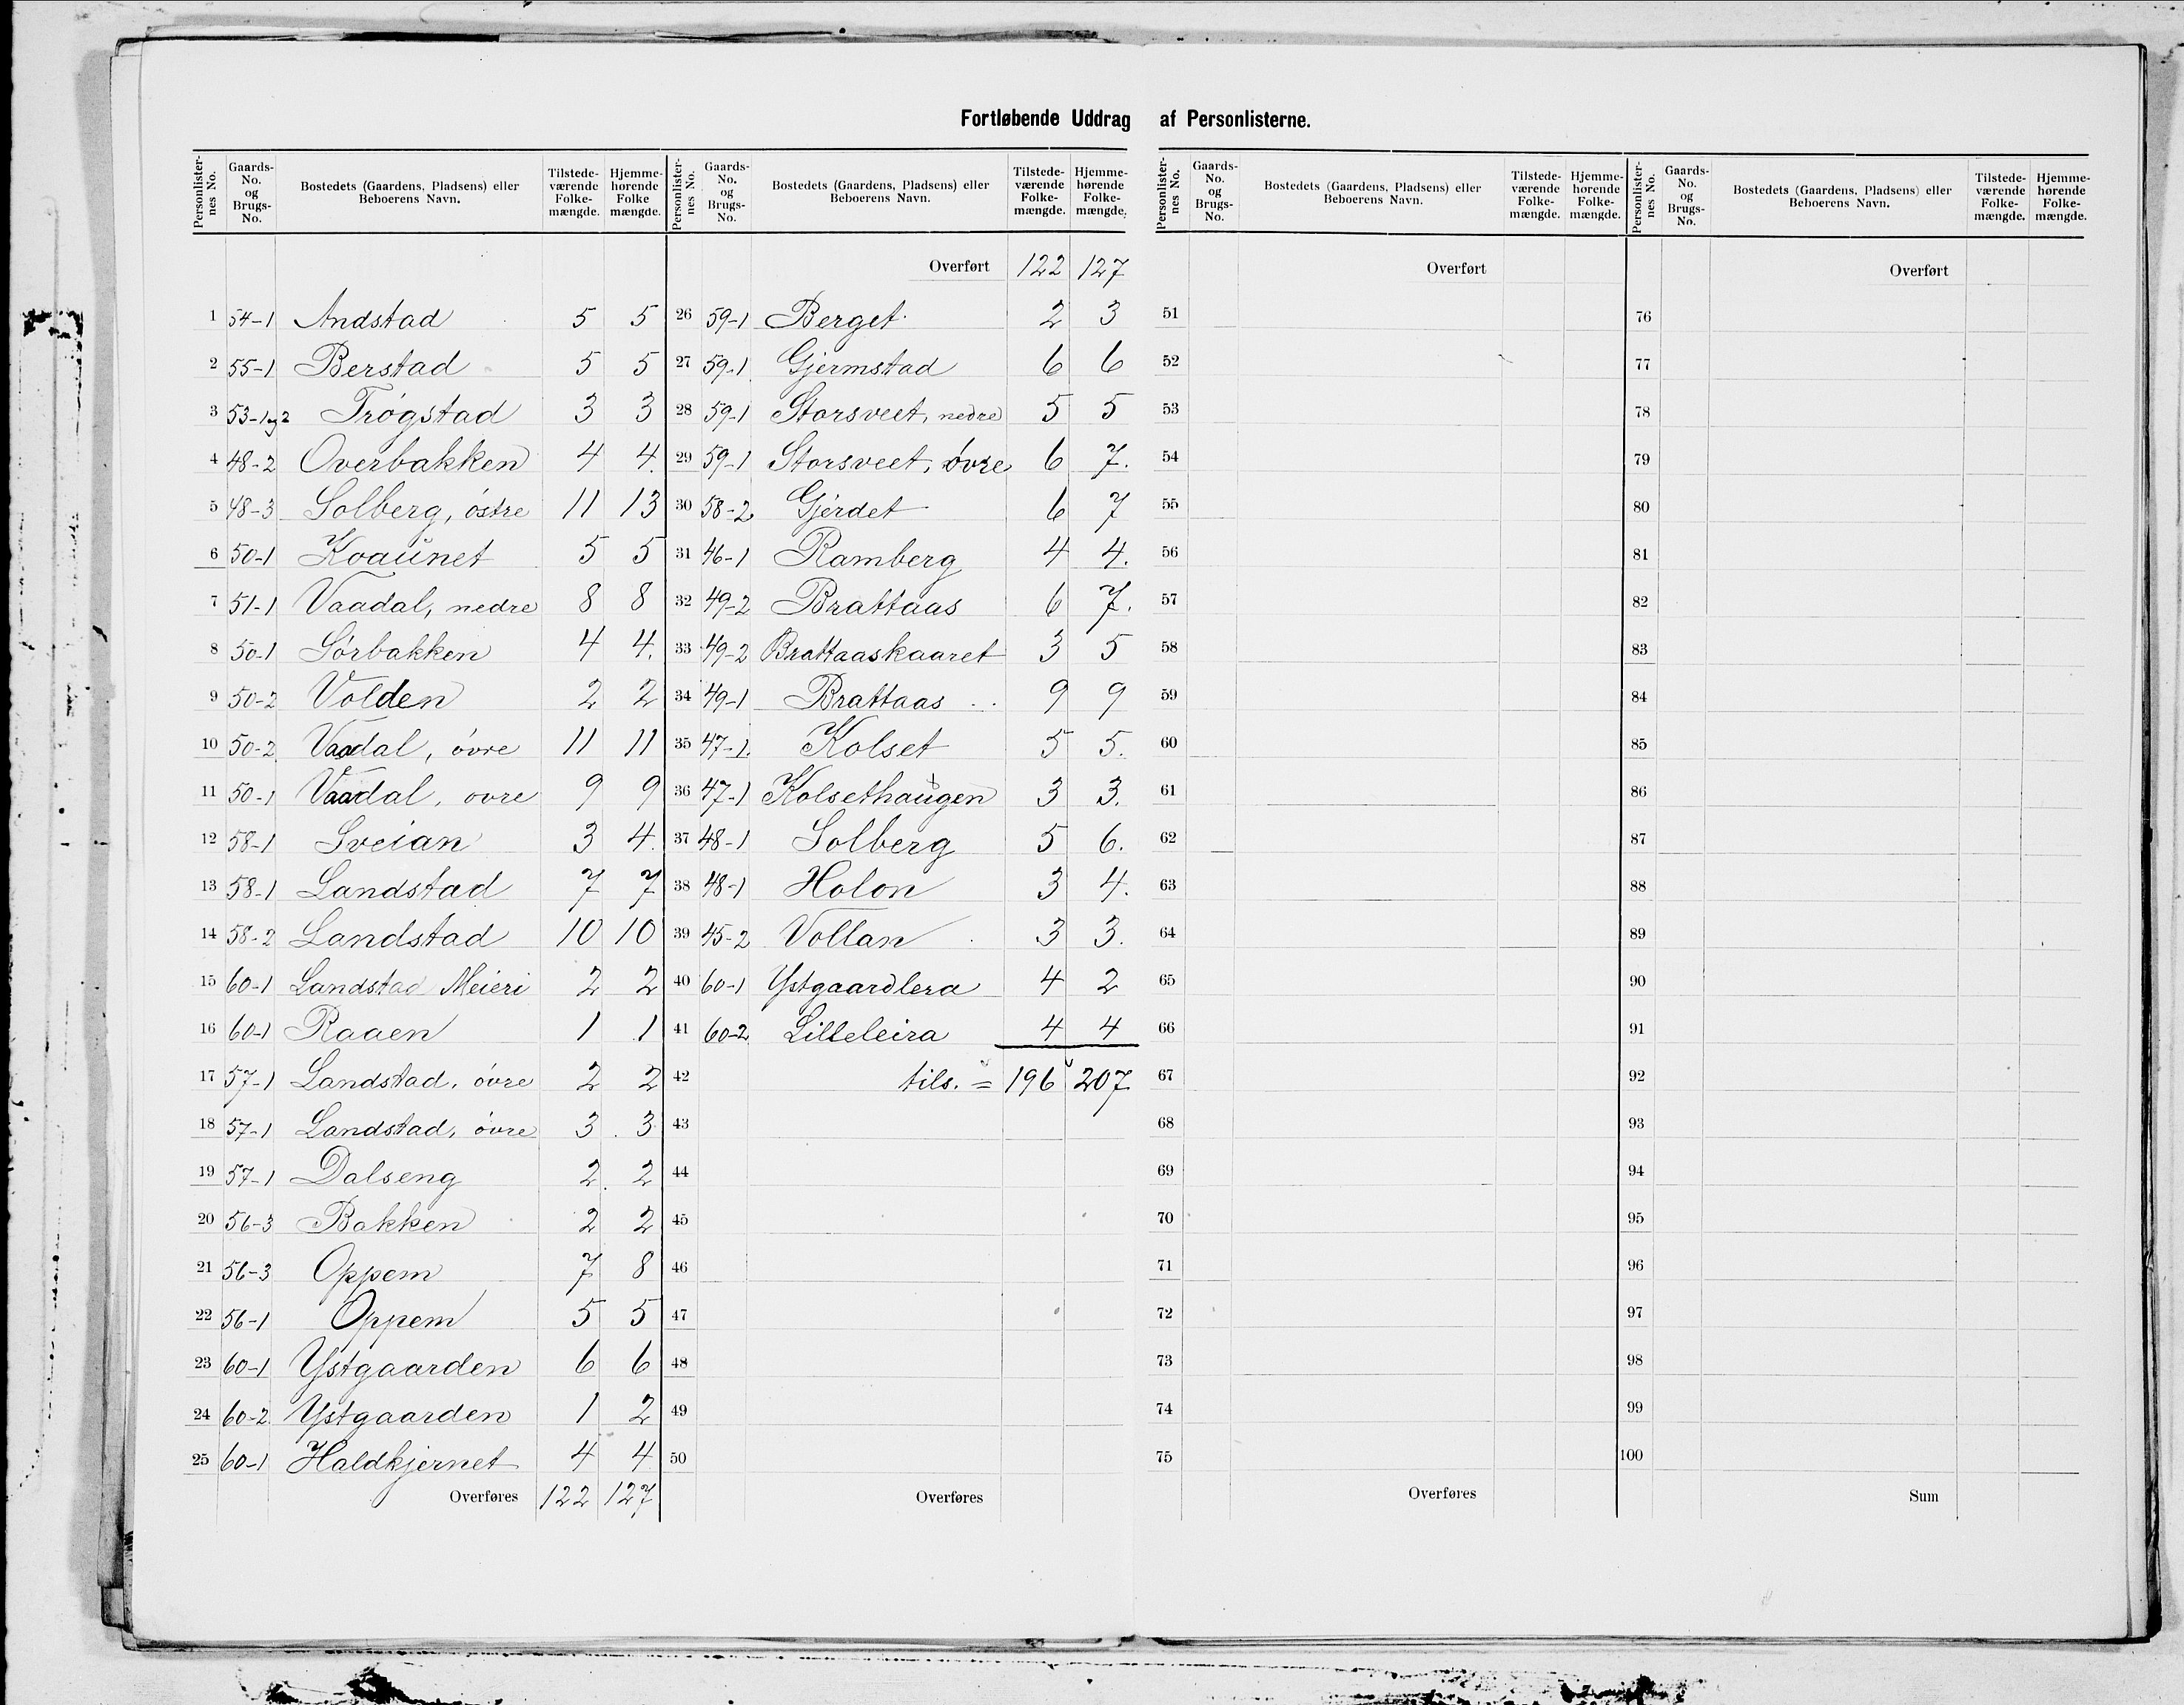 Fortløbende Uddrag af Personlisterne.
Personlisternes No. Gaards-No. og Brugs-No. Bostedets (Gaardens, Pladsens) eller Beboerens Navn. Tilstedeværende Folkemængde. Hjemmehørende Folkemængde.
1 54-1 Andstad 5 5
2 55-1 Berstad 5 5
3 53-1og2 Trøgstad 3 3
4 48-2 Overbakken 4 4.
5 48-3 Solberg, östre 11 13
6 50-1 Koaunet 5 5
7 51-1 Vaadal, nedre 8 8
8 50-1 Sörbakken 4 4.
9 50-2 Volden 2 2
10 50-2 Vaadal, övre 11 11
11 50-1 Vaadal, ovre 9 9
12 58-1 Sveian 3 4.
13 58-1 Landstad 7 7
14 58-2 Landstad 10 10
15 60-1 Landstad Meieri 2 2
16 60-1 Raaen 1 1
17 57-1 Landstad, övre 2 2
18 57-1 Landstad, övre 3 3
19 57-1 Dalseng 2 2
20 56-3 Bakken 2 2
21 56-3 Oppem 7 8
22 56-1 Oppem 5 5
23 60-1 Ystgaarden 6 6
24 60-2 Ystgaarden 1 2
25 60-1 Haldkjernet 4 4
Overføres 122 127
Personlisternes No. Gaards-No. og Brugs-No. Bostedets (Gaardens, Pladsens) eller Beboerens Navn. Tilstedeværende Folkemængde. Hjemmehørende Folkemængde.
Overført 122 127
26 59-1 Berget 2 3
27 59-1 Gjermstad 6 6
28 59-1 Storsveet, nedre 5 5
29 59-1 Storsveet, övre 6 7.
30 58-2 Gjerdet 6 7
31 46-1 Ramberg 4 4.
32 49-2 Brattaas 6 7.
33 49-2 Brattaaskaaret 3 5
34 49-1 Brattaas 9 9
35 47-1 Kolset 5 5.
36 47-1 Kolsethaugen 3 3.
37 48-1 Solberg 5 6.
38 48-1 Holon 3 4.
39 45-2 Vollan 3 3.
40 60-1 Ystgaardlera 4 2
41 60-2 Lilleleira 4 4
42 tils. = 196 207
43
44
45
46
47
48
49
50
Overføres
Personlisternes No. Gaards-No. og Brugs-No. Bostedets (Gaardens, Pladsens) eller Beboerens Navn. Tilstedeværende Folkemængde. Hjemmehørende Folkemængde.
Overført
51
52
53
54
55
56
57
58
59
60
61
62
63
64
65
66
67
68
69
70
71
72
73
74
75
Overføres
Personlisternes No. Gaards-No. og Brugs-No. Bostedets (Gaardens, Pladsens) eller Beboerens Navn. Tilstedeværende Folkemængde. Hjemmehørende Folkemængde.
Overført
76
77
78
79
80
81
82
83
84
85
86
87
88
89
90
91
92
93
94
95
96
97
98
99
100
Sum